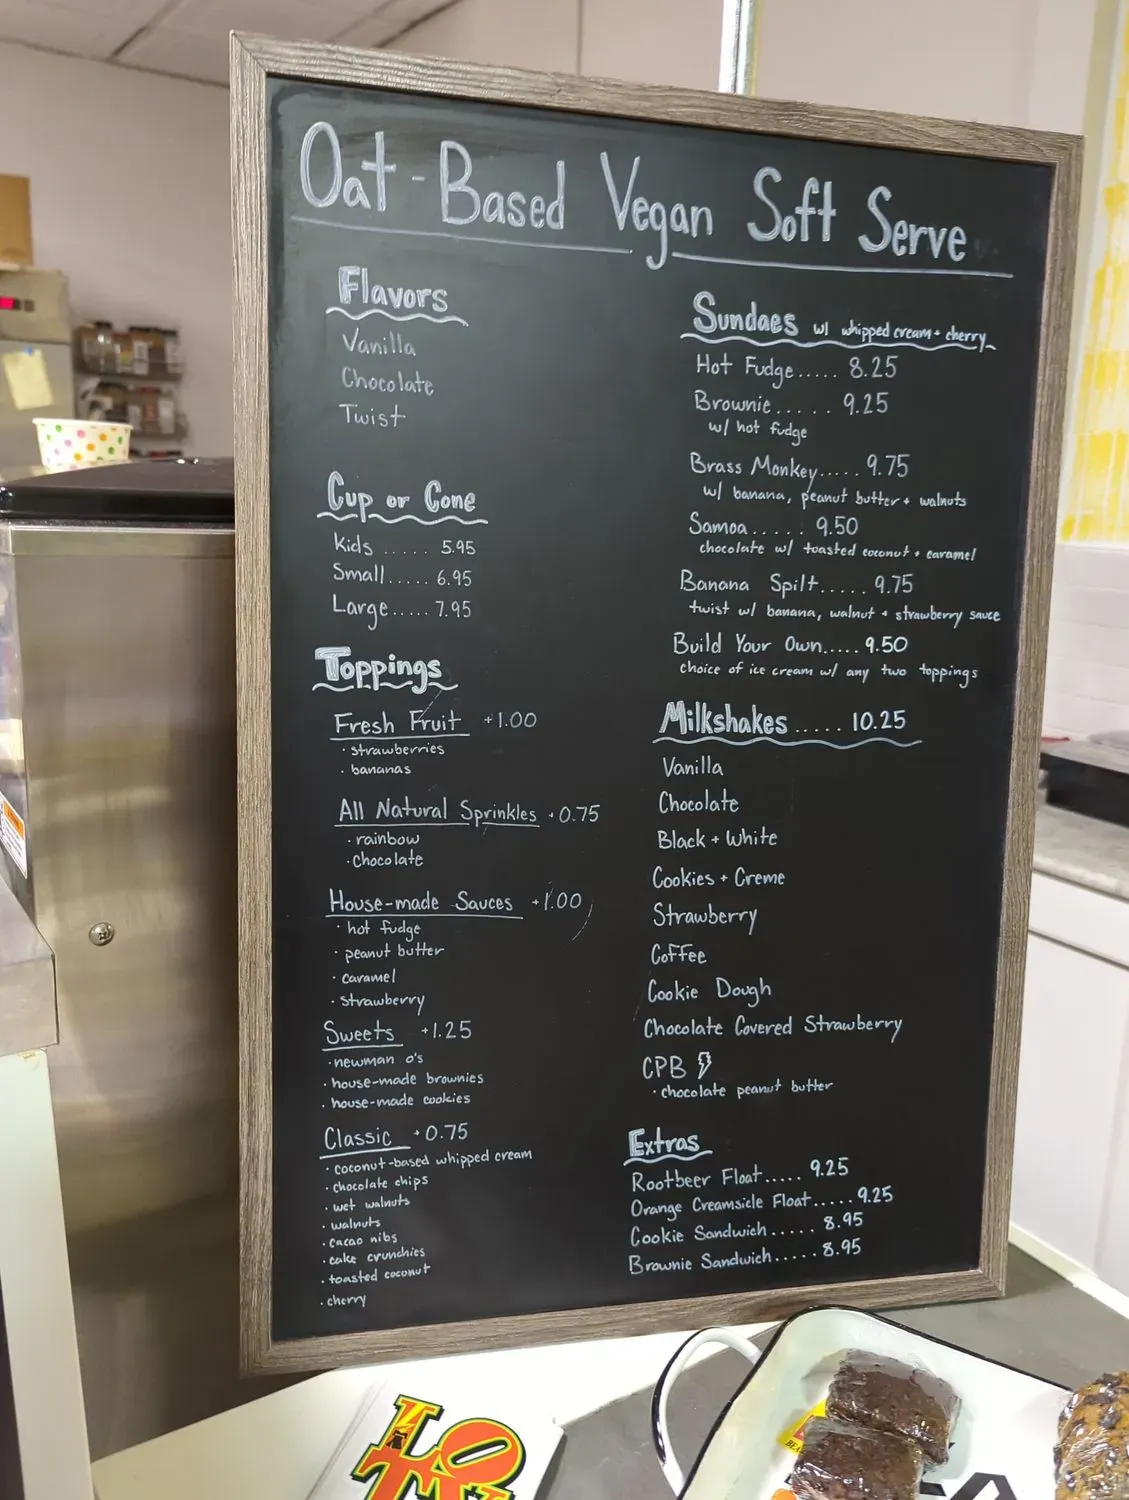 Oat-Based Vegan Soft Serve
Flavors
Vanilla
Chocolate
Twist
Cup or Cone
Kids ..... 5.95
Small..... 6.95
Large..... 7.95
Toppings
Fresh Fruit +1.00
· strawberries
· bananas
All Natural Sprinkles +0.75
· rainbow
· chocolate
House-made Sauces +1.00
· hot fudge
· peanut butter
· caramel
· strawberry
Sweets +1.25
· newman o's
· house-made brownies
· house-made cookies
Classic +0.75
· coconut-based whipped cream
· chocolate chips
· wet walnuts
· walnuts
· cacao nibs
· cake crunchies
· toasted coconut
· cherry
Sundaes w/ whipped cream + cherry
Hot Fudge..... 8.25
Brownie..... 9.25
w/ hot fudge
Brass Monkey..... 9.75
w/ banana, peanut butter + walnuts
Samoa..... 9.50
chocolate w/ toasted coconut + caramel
Banana Spilt..... 9.75
twist w/ banana, walnut + strawberry sauce
Build Your Own..... 9.50
choice of ice cream w/ any two toppings
Milkshakes..... 10.25
Vanilla
Chocolate
Black + White
Cookies + Creme
Strawberry
Coffee
Cookie Dough
Chocolate Covered Strawberry
CPB
· chocolate peanut butter
Extras
Rootbeer Float..... 9.25
Orange Creamsicle Float..... 9.25
Cookie Sandwich..... 8.95
Brownie Sandwich..... 8.95
LO